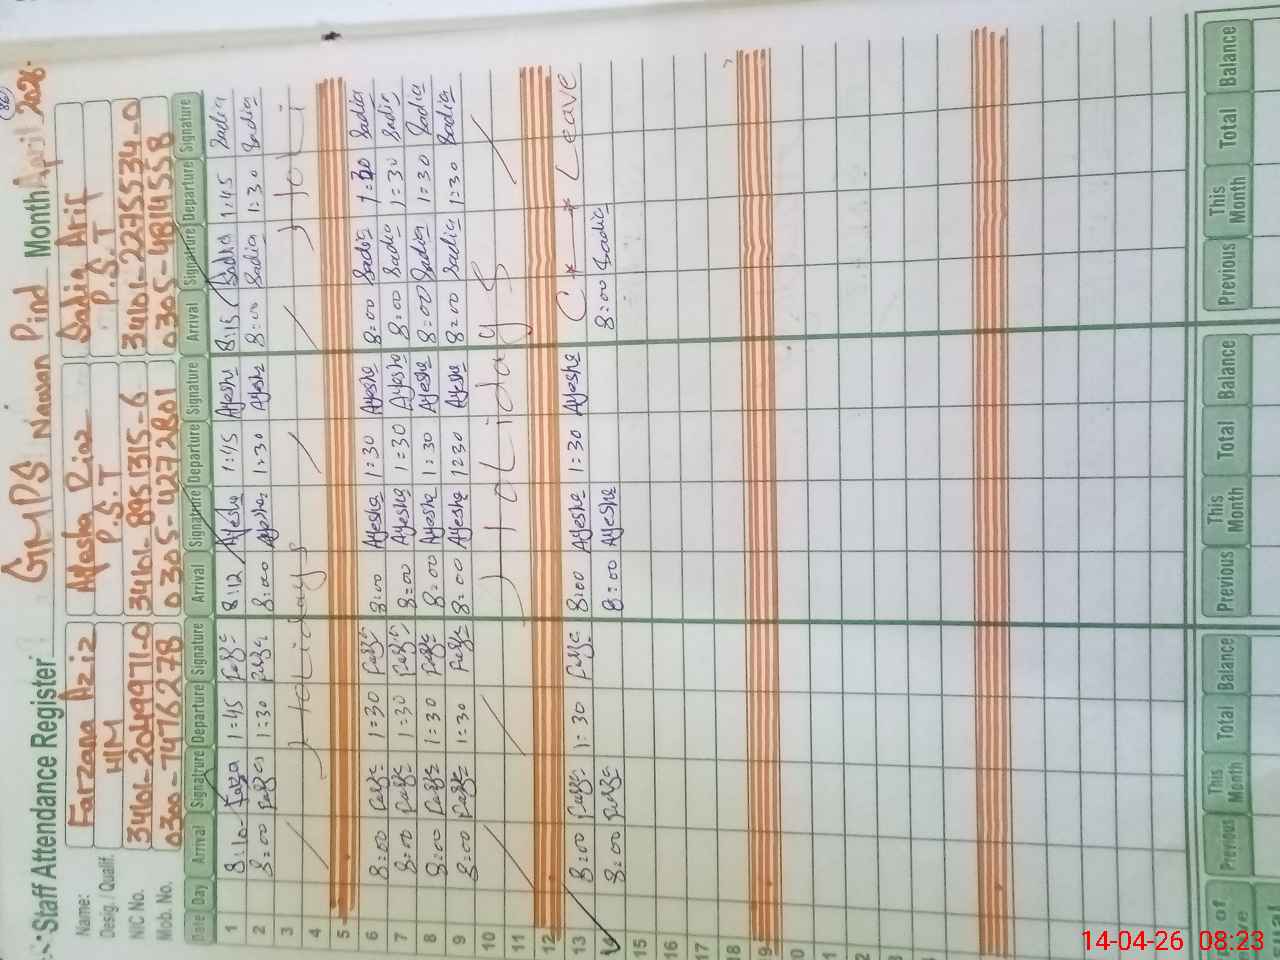 (86)
GMPS Nawan Pind Month April 2026.
Staff Attendance Register
Name: Farzana Aziz Ayesha Riaz Sadia Arif
Desig. Qualif. HM P.S.T P.S.T
NIC No. 34101-2049971-0 34101-8951315-6 34101-2275534-0
Mob. No. 0300-7476278 0305-4272801 0305-4814558
Date Day Arrival Signature Departure Signature Arrival Signature Departure Signature Arrival Signature Departure Signature
1 8:10 1:45 8:12 Ayesha 1:45 Ayesha 8:15 Sadia 1:45 Sadia
2 8:00 1:30 8:00 Ayesha 1:30 Ayesha 8:00 Sadia 1:30 Sadia
3 Holidays Holi
4
5
6 8:00 1:30 8:00 Ayesha 1:30 Ayesha 8:00 Sadia 1:30 Sadia
7 8:00 1:30 8:00 Ayesha 1:30 Ayesha 8:00 Sadia 1:30 Sadia
8 8:00 1:30 8:00 Ayesha 1:30 Ayesha 8:00 Sadia 1:30 Sadia
9 8:00 1:30 8:00 Ayesha 1230 Ayesha 8:00 Sadia 1:30 Sadia
10 Holidays
11
12
13 8:00 1:30 8:00 Ayesha 1:30 Ayesha C Leave
14 8:00 8:00 Ayesha 8:00 Sadia
15
16
17
18
19
Previous This Month Total Balance Previous This Month Total Balance Previous This Month Total Balance
14-04-26 08:23